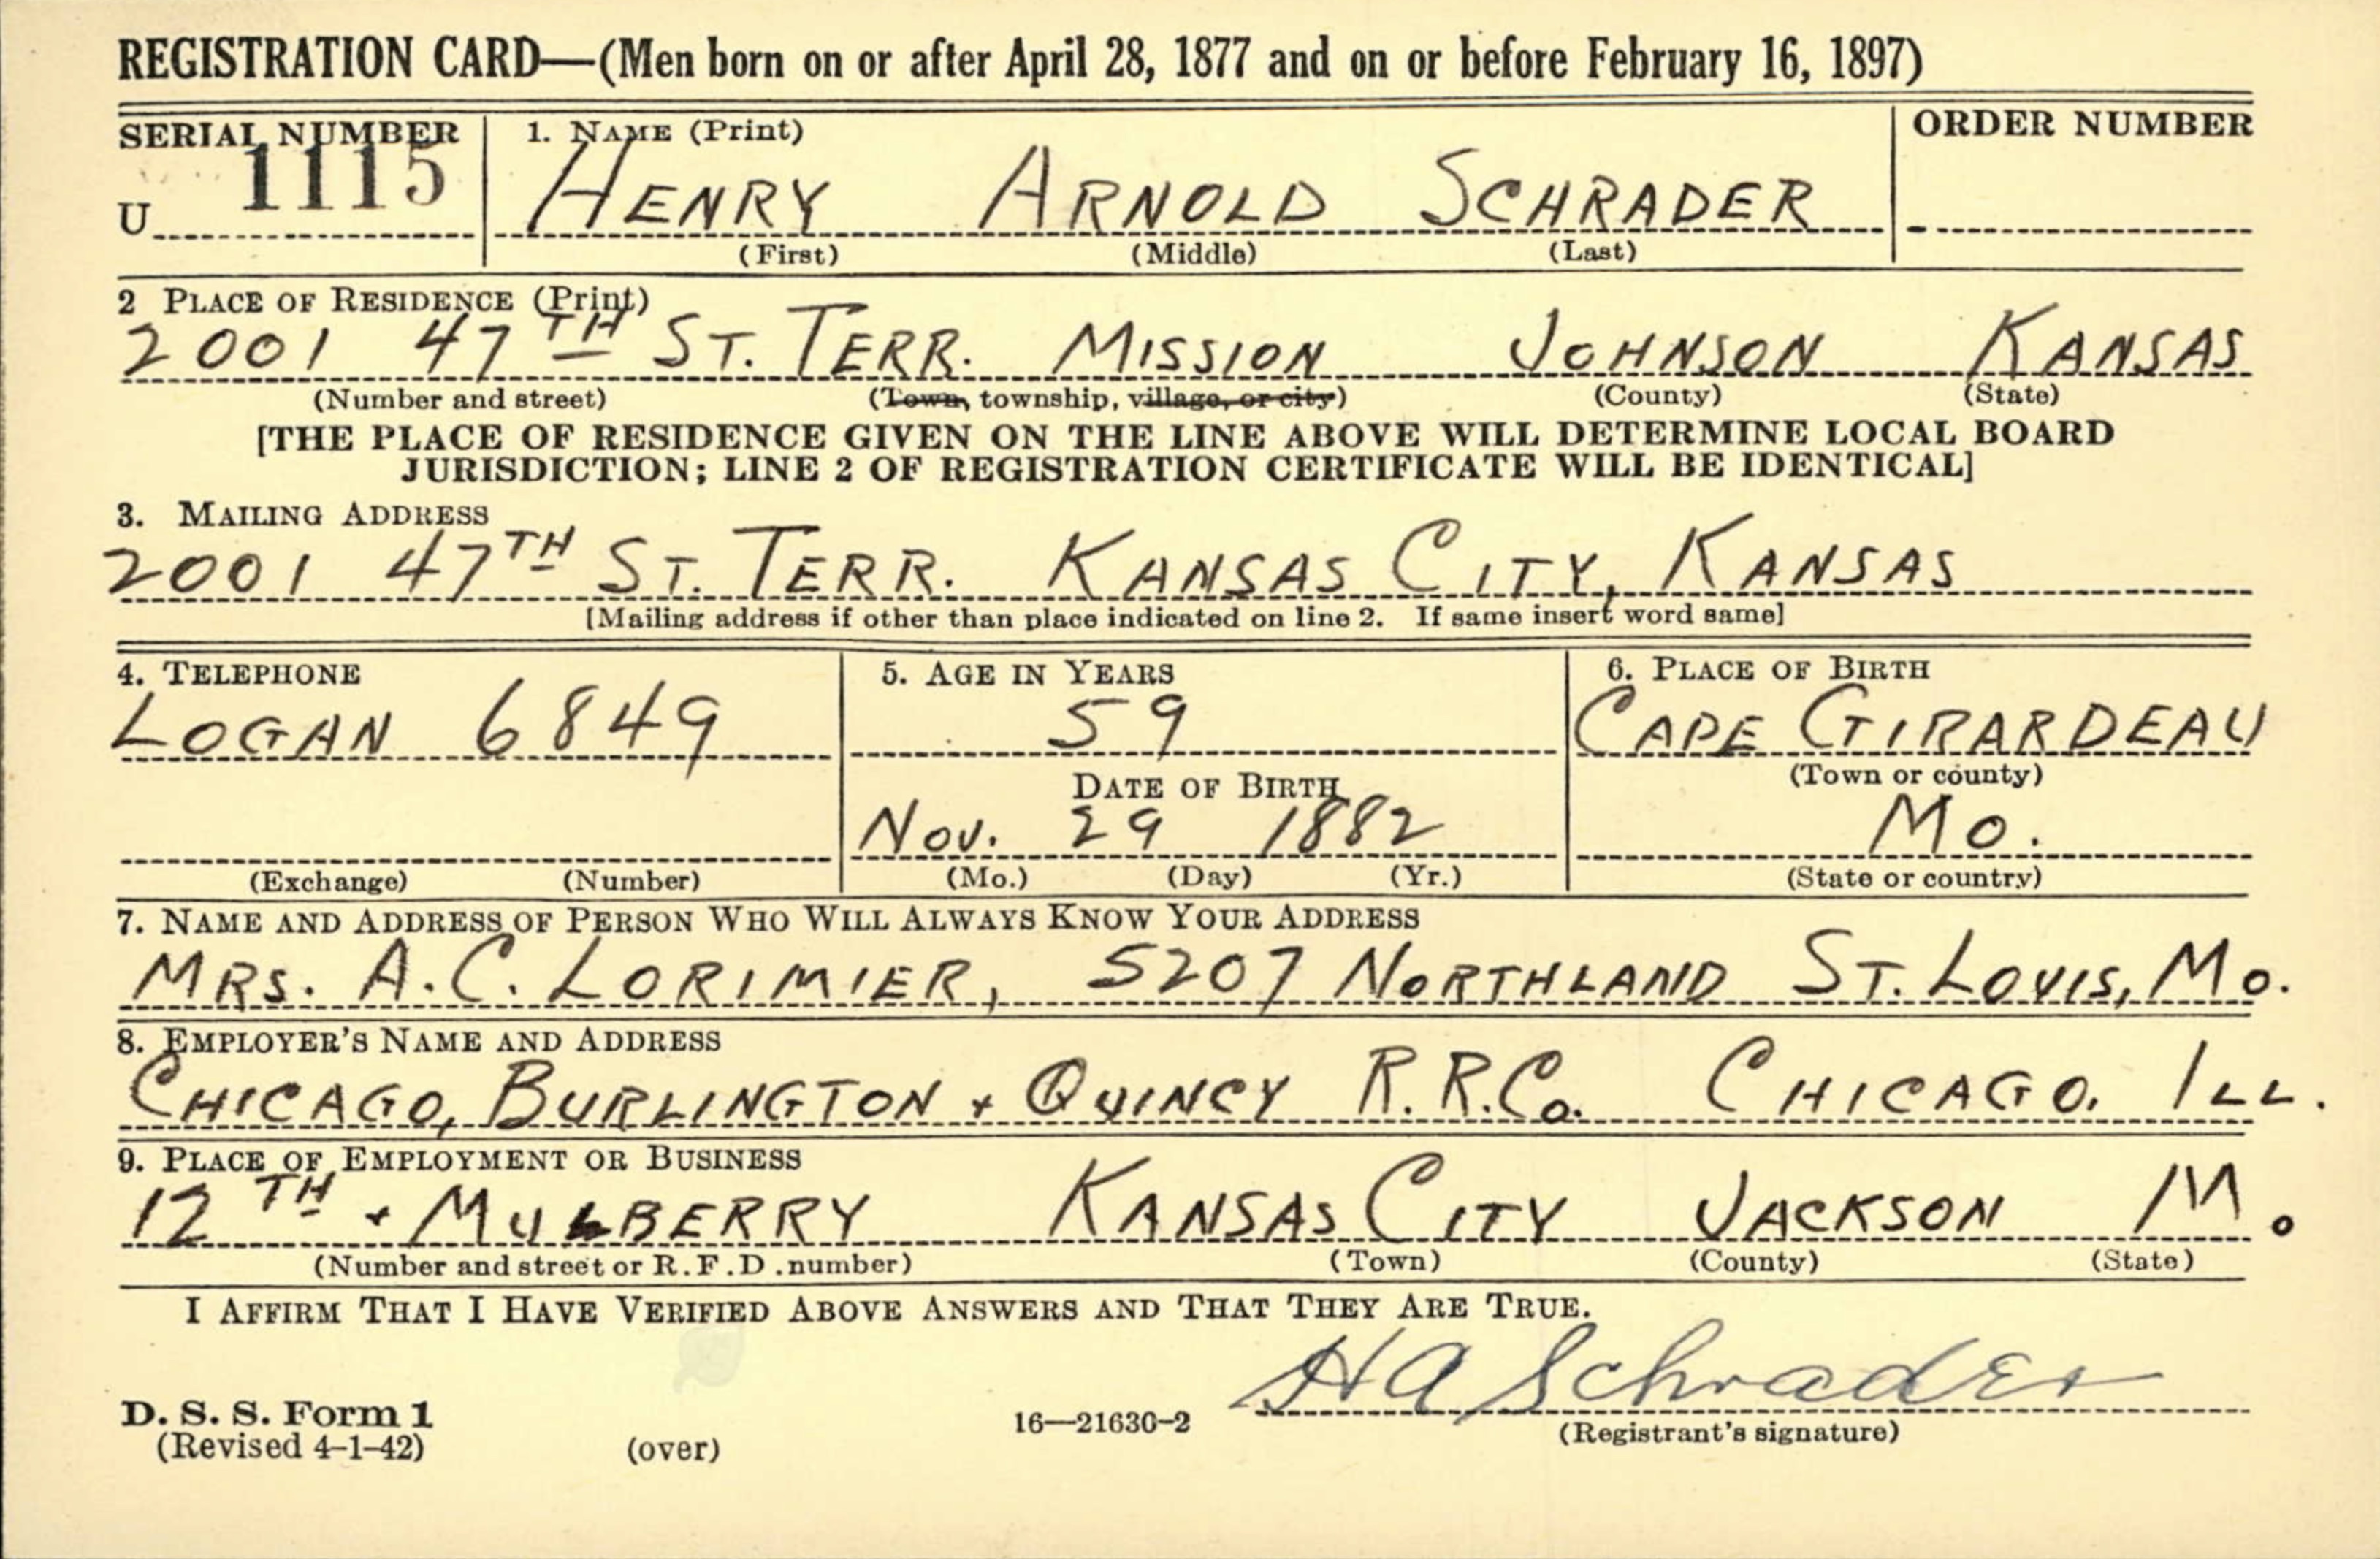 REGISTRATION CARD—(Men born on or after April 28, 1877 and on or before February 16, 1897)
SERIAL NUMBER 1. NAME (Print) ORDER NUMBER
U 1115 HENRY ARNOLD SCHRADER
(First) (Middle) (Last)
2 PLACE OF RESIDENCE (Print)
2001 47TH ST. TERR. MISSION JOHNSON KANSAS
(Number and street) (Town, township, village, or city) (County) (State)
[THE PLACE OF RESIDENCE GIVEN ON THE LINE ABOVE WILL DETERMINE LOCAL BOARD
JURISDICTION; LINE 2 OF REGISTRATION CERTIFICATE WILL BE IDENTICAL]
3. MAILING ADDRESS
2001 47TH ST. TERR. KANSAS CITY, KANSAS
[Mailing address if other than place indicated on line 2. If same insert word same]
4. TELEPHONE 5. AGE IN YEARS 6. PLACE OF BIRTH
LOGAN 6849 59 CAPE GIRARDEAU
DATE OF BIRTH (Town or county)
Nov. 29 1882 MO.
(Exchange) (Number) (Mo.) (Day) (Yr.) (State or country)
7. NAME AND ADDRESS OF PERSON WHO WILL ALWAYS KNOW YOUR ADDRESS
MRS. A.C. LORIMIER, 5207 NORTHLAND ST. LOUIS, MO.
8. EMPLOYER'S NAME AND ADDRESS
CHICAGO, BURLINGTON + QUINCY R.R.Co. CHICAGO. ILL.
9. PLACE OF EMPLOYMENT OR BUSINESS
12TH + MULBERRY KANSAS CITY JACKSON Mo
(Number and street or R.F.D. number) (Town) (County) (State)
I AFFIRM THAT I HAVE VERIFIED ABOVE ANSWERS AND THAT THEY ARE TRUE.
H A Schrader
D. S. S. Form 1 16—21630-2 (Registrant's signature)
(Revised 4-1-42) (over)